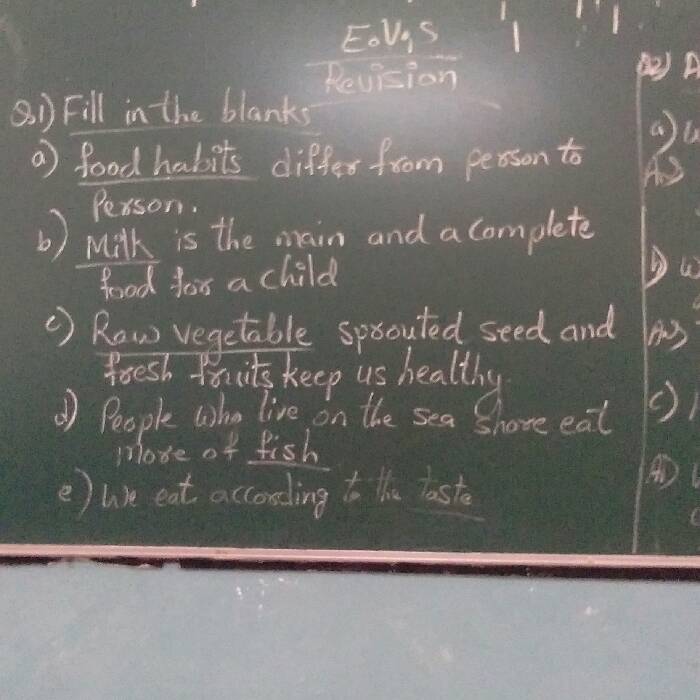 E.V.S
Revision
Q1) Fill in the blanks
a) food habits differ from person to
Person.
b) Milk is the main and a complete
food for a child
c) Raw vegetable sprouted seed and
fresh fruits keep us healthy.
d) People who live on the sea shore eat
more of fish
e) We eat according to the taste
Q2) A
a)
Ans
b) w
Ans
c)
A)